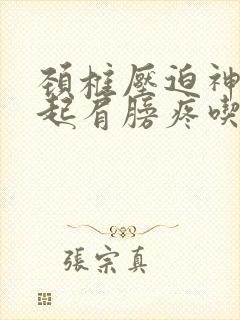 頸椎壓迫神
起肩膀疼喫
張宗真